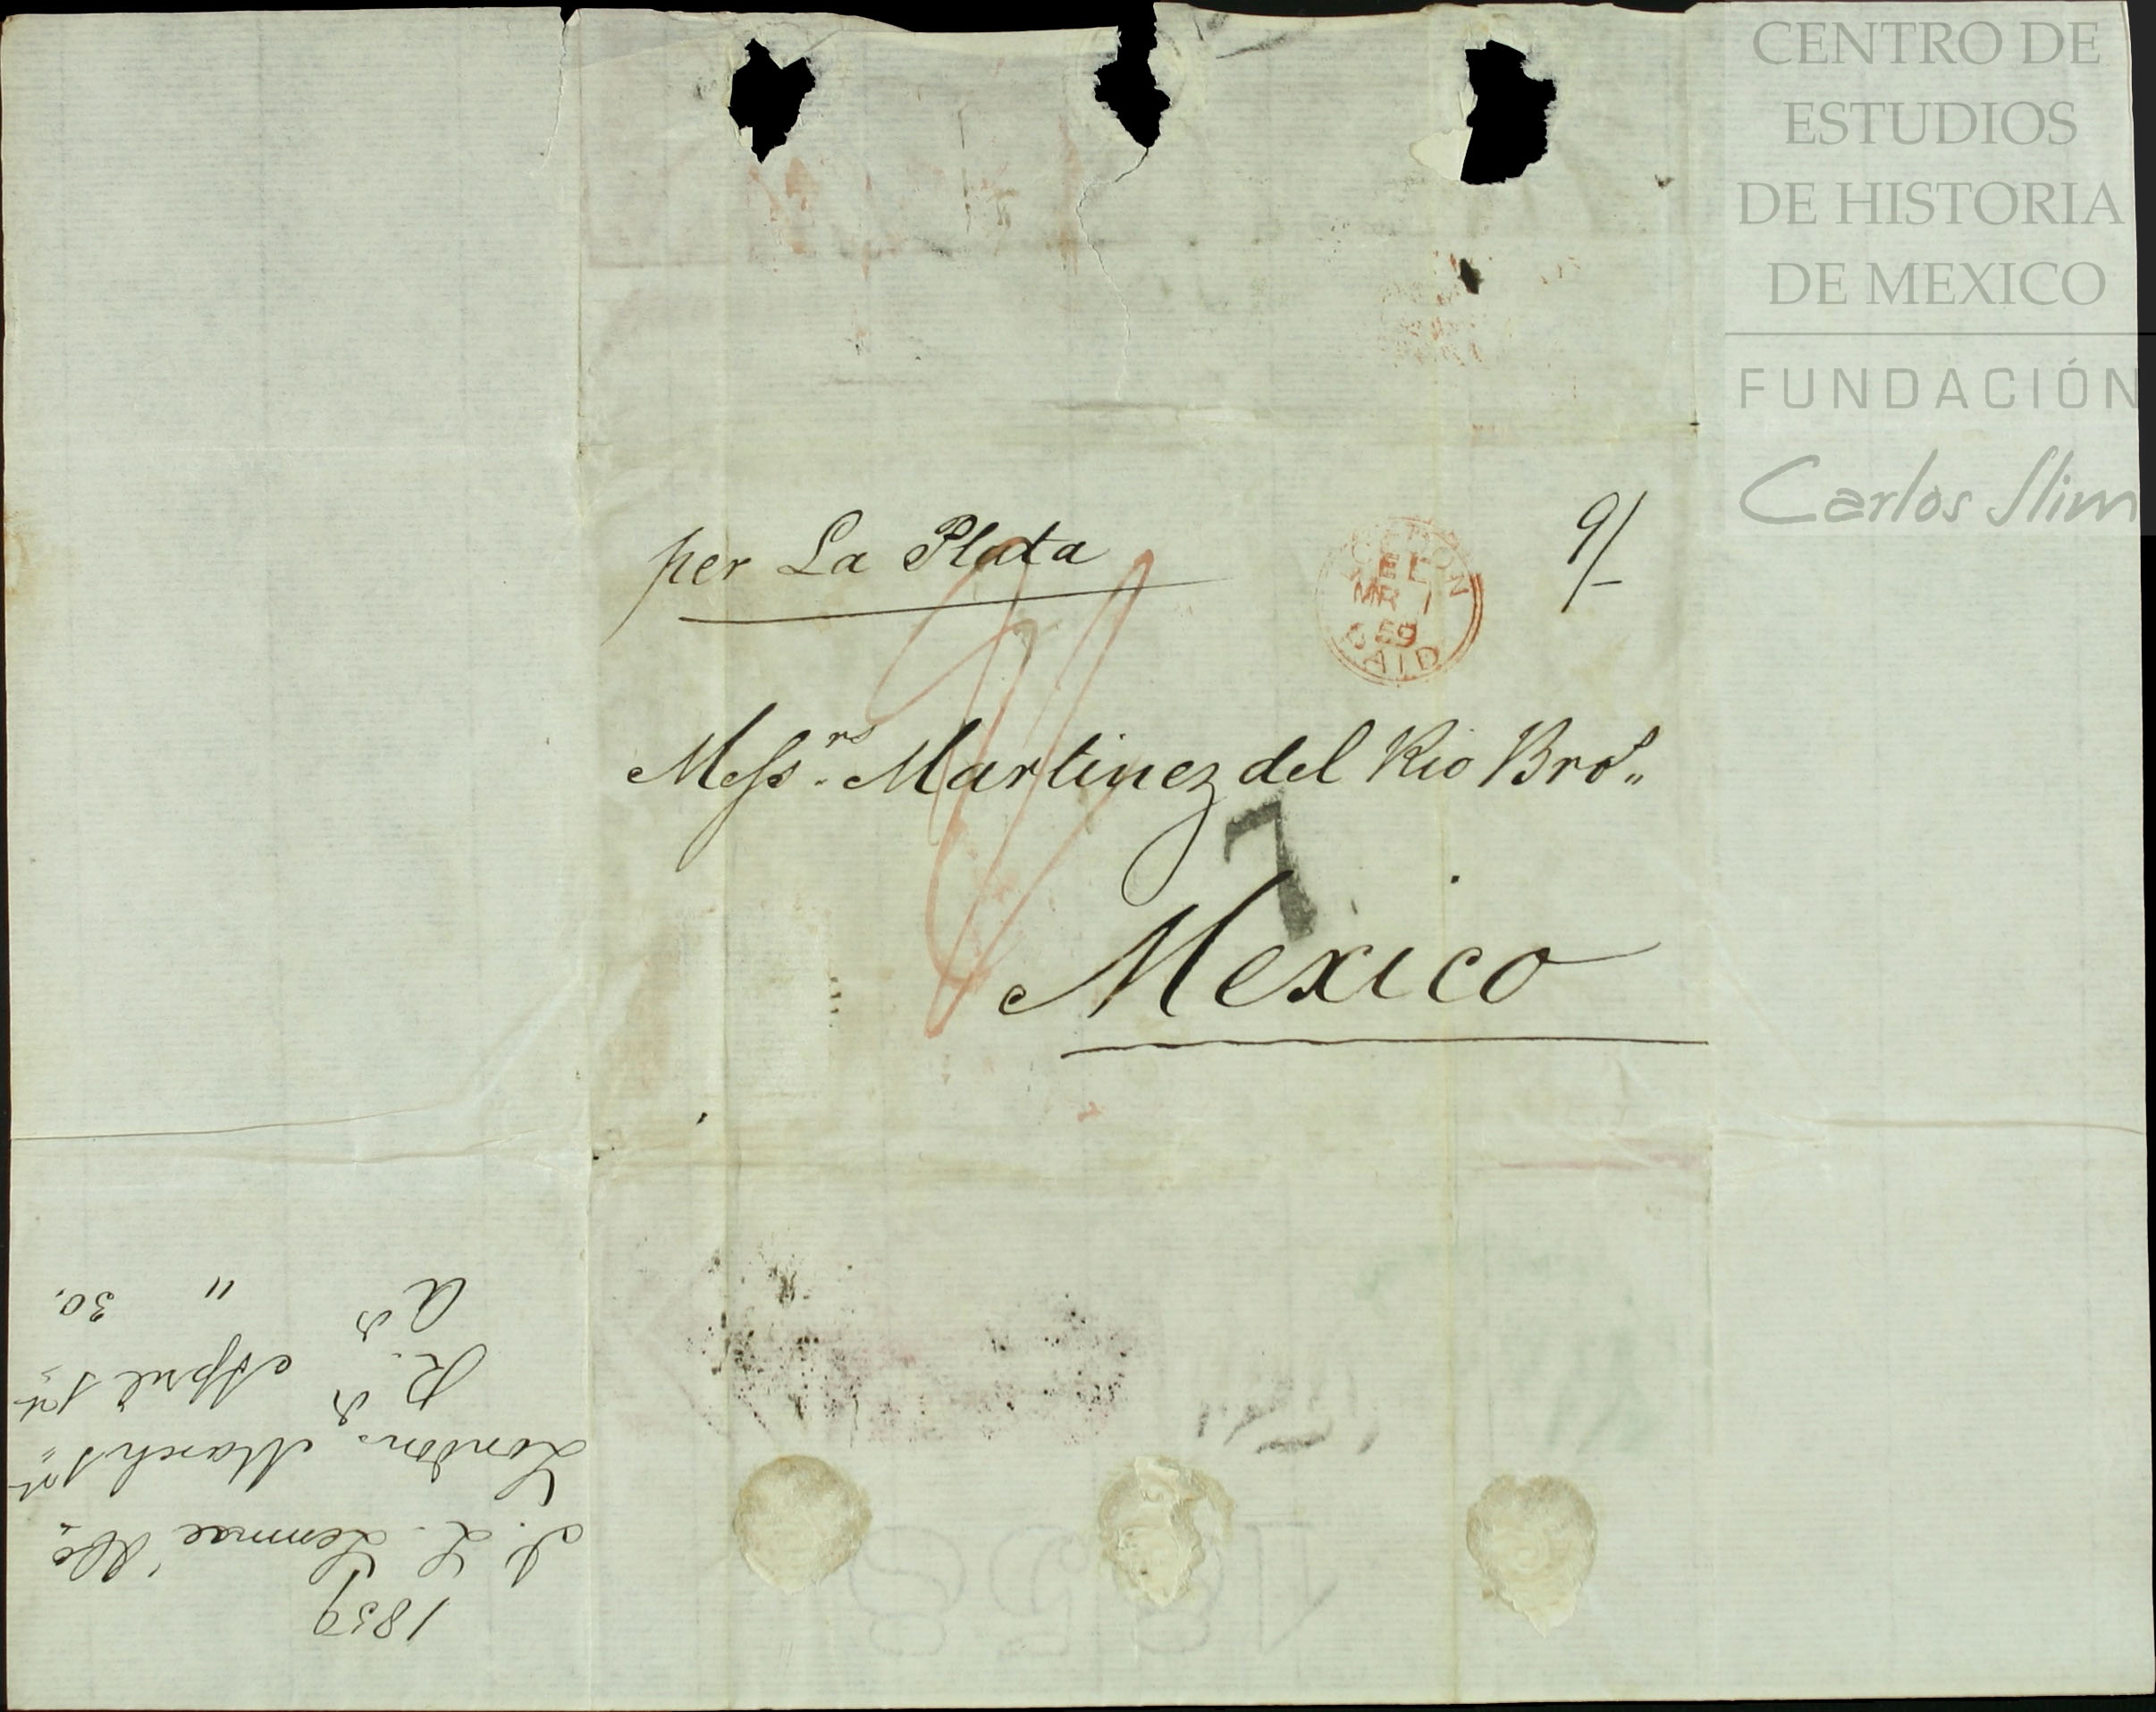 CENTRO DE
ESTUDIOS
DE HISTORIA
DE MEXICO
FUNDACIÓN
Carlos Slim
per La Plata
9/-
LONDON
EL
MR 1
59
PAID
Messrs. Martinez del Rio Bros.
7
Mexico
1859
J. L. Lemmé & Co.
London, March 1st
R. d April 1st
A d " 30.